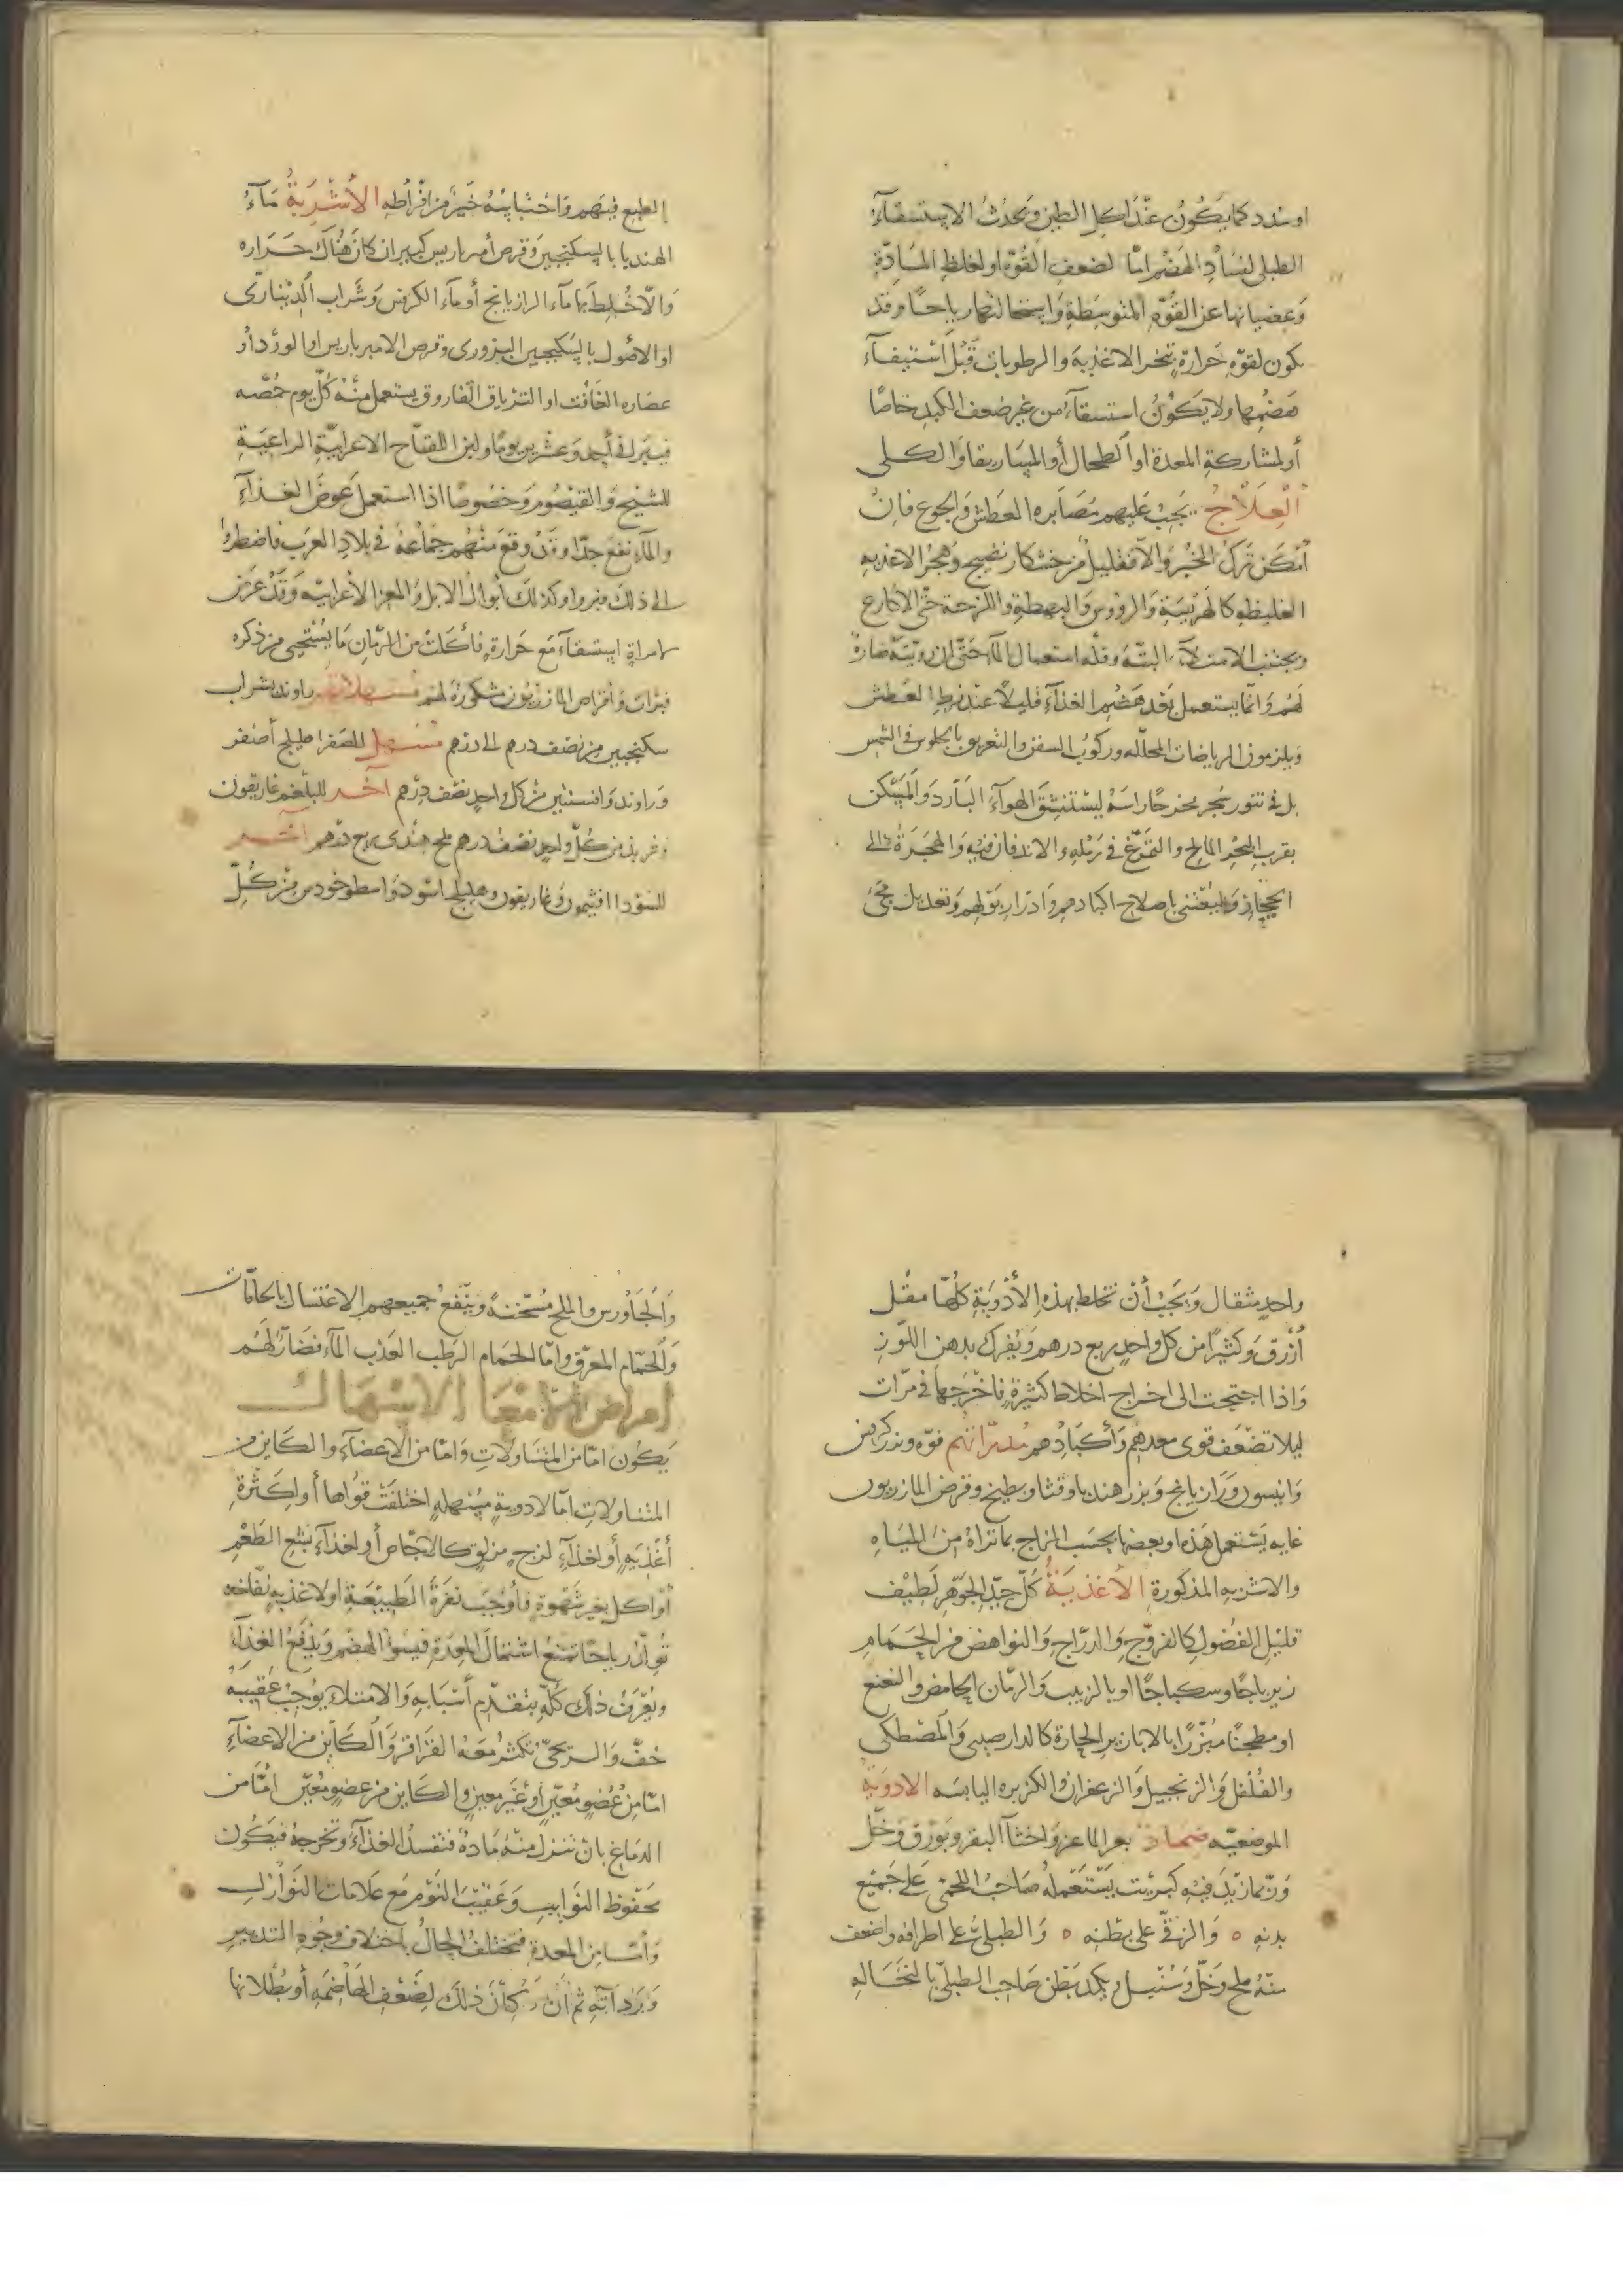 او سدد كما يكون عند اكل الطين ويحدث الاستسقاء
الطبلى لفساد الهضم امّا لضعف القوّة او لغلظ المادّة
وعصيانها عن القوّة المتوسطة واستحالتها رياحًا وقد
يكون لقوّة حرارة تبخر الاغذية والرطوبات قبل استيفاء
هضمها ولا يكون استسقاء من غير ضعف الكبد خاصًا
أو لمشاركة المعدة او الطحال أو الماساريقا والكلى
العلاج يجب عليهم مصابره العطش والجوع فان
أمكن ترك الخبز والّا فقليل من خشكار نضيج وهجر الاغذيه
الغليظه كالهريسة والرؤوس والبهطة واللزجة حتّى الاكارع
ويجتنب الامتلاء البتّه وقلّه استعمال الماء حتّى ان رؤيته ضارة
لهم وانّما يستعمل بعد هضم الغذاء قليلًا عند فرط العطش
ويلزمون الرياضات المحلّله وركوب السفن والتعريق بالجلوس فى الشمس
بل فى تنور سجر مخرجًا راسه ليستنشق الهواء البارد والمسكن
بقرب البحر المالح والتمرّغ فى رمله والاندفان فيه والهجرة الى
الحجاز ويعتنى باصلاح اكبادهم وادرار بولهم وتعديل مجئ
الطبع فيهم واحتباسه خير من افراطه الأشربة ماء
الهندبا بالسكنجبين وقرص أمبرباريس كبير ان كان هناك حراره
والّا خلط بها ماء الرازيانج أو ماء الكرفس وشراب الدينارى
او الاصول بالسكنجبين البزورى وقرص الامبرباريس او الورد او
عصاره الغافت او الترياق الفاروق يستعمل منه كلّ يوم حمّصه
فيبرا فى أحد وعشرين يومًا ولبن اللقاح الاعرابيّة الراعية
للشيح والقيصوم وخصوصًا اذا استعمل عوض الغذاء
والماء نفع جدّا وقد وقع منهم جماعة فى بلاد العرب فاضطروا
الى ذلك فبروا وكذلك أبوال الابل والمعز الأعرابيّه وقد عرض
لامراة استسقاء مع حرارة فأكلت من الرّمان ما يستحيى من ذكره
فبرات واقراص المازريون مشكورة لهم مسهلاتهم راوند بشراب
سكنجبين من نصف درهم الى درهم مسهل للصفرا هليلج أصفر
وراوند وافسنتين من كل واحد نصف درهم آخر للبلغم غاريقون
وتربد من كلّ واحد نصف درهم ملح هندى ربع درهم آخر
للسودا افتيمون وغاريقون وهليلج اسود واسطوخودس من كلّ
واحد مثقال ويجب أن تخلط بهذه الأدوية كلّها مقل
أزرق وكثيرًا من كل واحد ربع درهم ويفرك بدهن اللوز
واذا احتجت الى اخراج اخلاط كثيرة فاخرجها فى مرّات
ليلا تضعف قوى معدهم وأكبادهم مدرّاتهم فوّه وبزر كرفس
وانيسون ورازيانج وبزر هندبا وقثا وبطيخ وقرص المازريون
غايه يستعمل هذه او بعضها بحسب المزاج بما تراه من المياه
والاشربه المذكورة الأغذية كلّ جيّد الجوهر لطيف
قليل الفضول كالفروّج والدرّاج والنواهض من الحمام
زيرباجًا وسكباجًا او بالزبيب والرمّان الحامض والنعنع
او مطجنًا مبزرًا بالابازير الحارة كالدارصينى والمصطكى
والفلفل والزنجبيل والزعفران والكزبره اليابسه الادوية
الموضعيّه ضماد بعر الماعز واخثا البقر وبورق وخل
وربّما زيد فيه كبريت يستعمله صاحب اللحمى على جميع
بدنه ٥ والزقّى على بطنه ٥ والطبلى على اطرافه واضعف
منه ملح وخلّ وسنبل ويكمد بطن صاحب الطبلىّ بالنخاله
والجاورس والملح مسخّنة وينفع جميعهم الاغتسال بالحمّامات
والحمّام المعرّق وامّا الحمام الرطب العذب الماء فضارّ لهم
امراض الامعا الاسهال
يكون امّا من المتناولات وامّا من الاعضاء والكاين من
المتناولات امّا لادوية مسهله اختلفت قواها أو لكثرة
أغذيه أو لغذاء لزج مزلق كالاجّاص أو لغذاء بشع الطعم
أو اكل بغير شهوة فأوجب نفرة الطبيعة او لاغذيه نفّاخه
تولّد رياحًا تمنع اشتمال المعدة فيسوء الهضم ويدفع الغذاء
ويعرف ذلك كلّه بتقدّم أسبابه والامتلاء يوجب عقيبه
خفّ والريحىّ تكثر معه القراقر والكاين من الاعضاء
امّا من عضو معيّن أو غير معين والكاين من عضو معيّن أمّا من
الدماغ بان تنزل منه مادة فتفسد الغذاء وتخرجه فيكون
محفوظ النوايب وعقيب النوم مع علامات النوازل
وأمّا من المعدة فتختلف الحال باختلاف وجوه التدبير
ورداءته ثم ان كان ذلك لضعف الهاضمه أو بطلانها